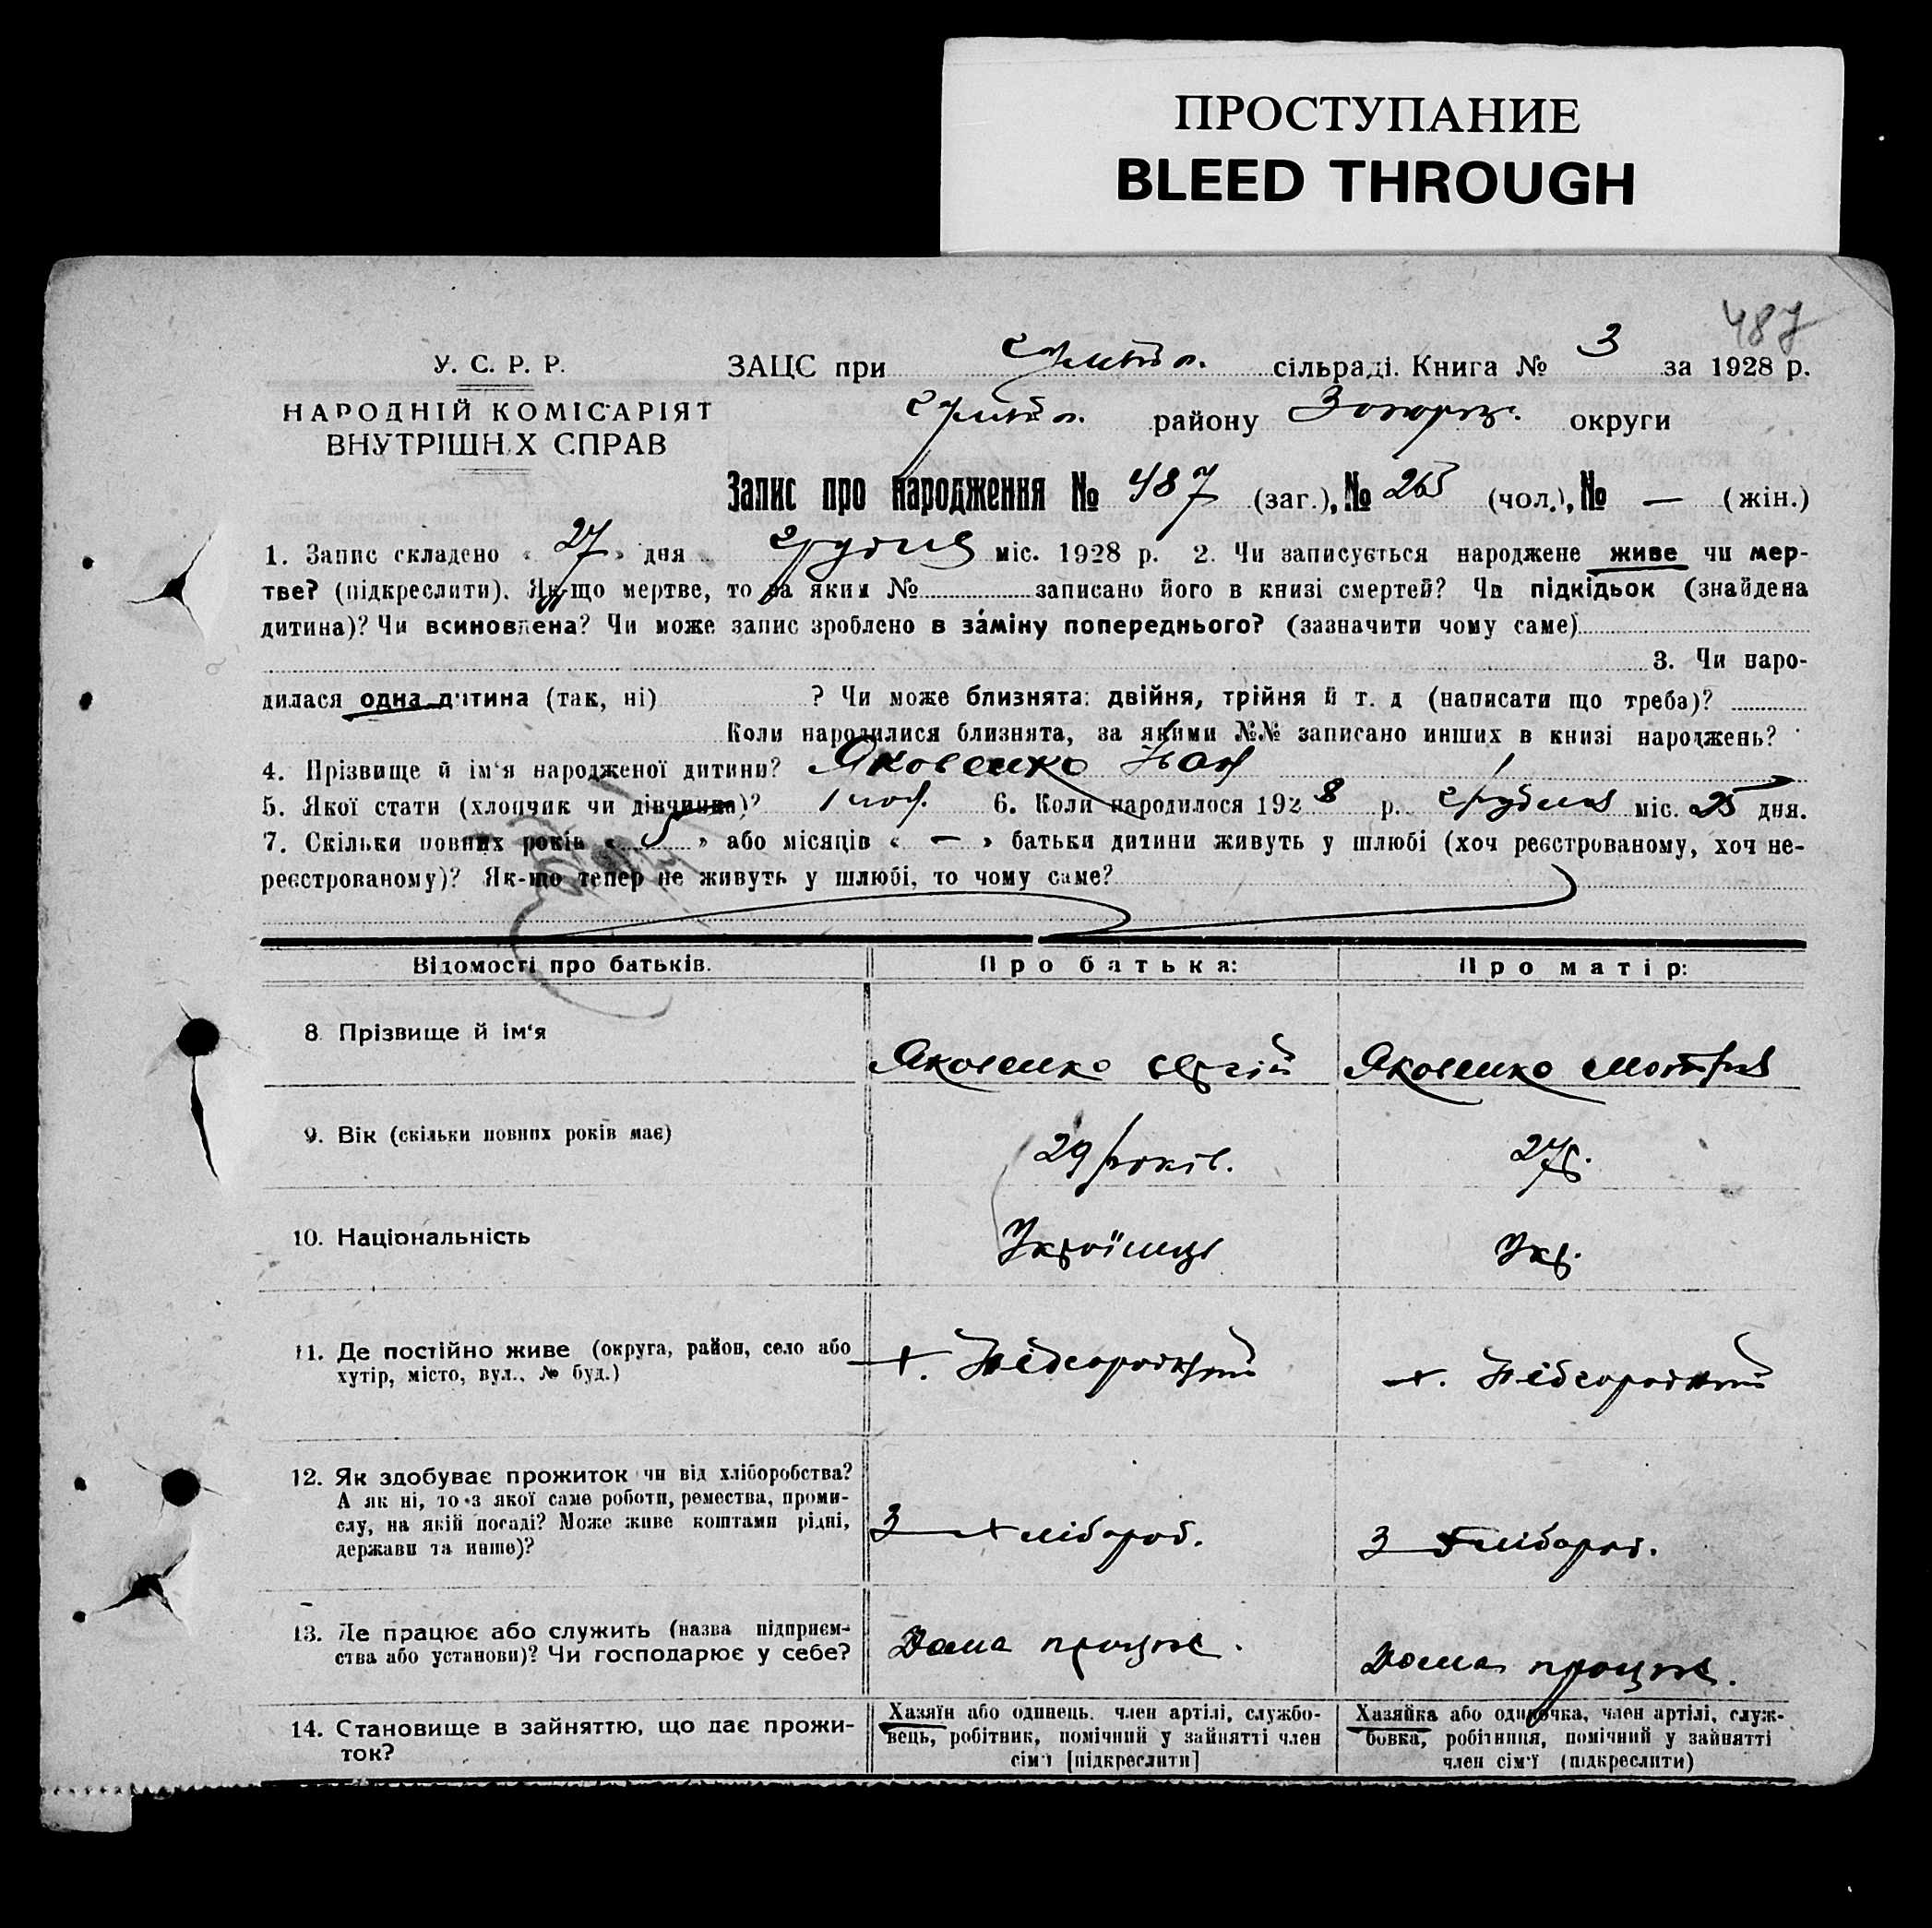 ПРОСТУПАНИЕ
BLEED THROUGH
487
У. С. Р. Р.
НАРОДНІЙ КОМІСАРІЯТ
ВНУТРІШНІХ СПРАВ
ЗАЦС при сільраді. Книга № 3 за 1928 р.
району Запоріз. округи
Запис про народження № 487 (заг.), № 265 (чол.), № — (жін.)
1. Запис складено « 27 » дня грудня міс. 1928 р. 2. Чи записується народжене живе чи мер-
тве? (підкреслити). Як-що мертве, то за яким № записано його в книзі смертей? Чи підкідьок (знайдена
дитина)? Чи всиновлена? Чи може запис зроблено в заміну попереднього? (зазначити чому саме)
3. Чи наро-
дилася одна дитина (так, ні) ? Чи може близнята: двійня, трійня й т. д (написати що треба)?
Коли народилися близнята, за якими №№ записано инших в книзі народжень?
4. Прізвище й ім'я народженої дитини? Яковенко Іван
5. Якої стати (хлопчик чи дівчинка)? 6. Коли народилося 1928 р. грудня міс. 25 дня.
7. Скільки повних років « 5 » або місяців « — » батьки дитини живуть у шлюбі (хоч реєстрованому, хоч не-
реєстрованому)? Як-що тепер не живуть у шлюбі, то чому саме?
Відомості про батьків.
Про батька:
Про матір:
8. Прізвище й ім'я
Яковенко Сергій
Яковенко Мотря
9. Вік (скільки повних років має)
29 років.
27 р.
10. Національність
Українець
Укр.
11. Де постійно живе (округа, район, село або
хутір, місто, вул., № буд.)
х. Підгородний
х. Підгородний
12. Як здобуває прожиток чи від хліборобства?
А як ні, то з якої саме роботи, ремества, проми-
слу, на якій посаді? Може живе коштами рідні,
держави та инше)?
З хлібороб.
З хлібороб.
13. Де працює або служить (назва підприєм-
ства або установи)? Чи господарює у себе?
Дома працює.
Дома працює.
14. Становище в зайняттю, що дає прожи-
ток?
Хазяїн або одинець, член артілі, службо-
вець, робітник, помічний у зайнятті член
сім'ї [підкреслити]
Хазяйка або одиночка, член артілі, служ-
бовка, робітниця, помічний у зайнятті
член сім'ї (підкреслити)